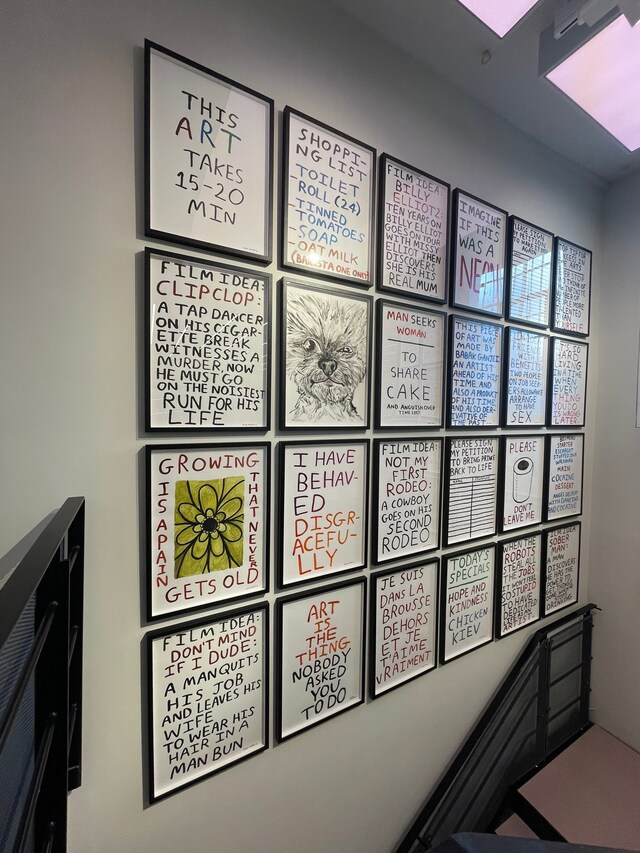 THIS
ART
TAKES
15-20
MIN
SHOPPI-
NG LIST
-TOILET
ROLL (24)
-TINNED
TOMATOES
-SOAP
-OAT MILK
(BARISTA ONE ONLY)
FILM IDEA
BILLY
ELLIOT 2:
TEN YEARS ON
BILLY ELLIOT
GOES ON TOUR
WITH MISSY
ELLIOT THEN
DISCOVERS
SHE IS HIS
REAL MUM
IMAGINE
IF THIS
WAS A
NEON
FILM IDEA:
CLIPCLOP:
A TAP DANCER
ON HIS CIGAR-
ETTE BREAK
WITNESSES A
MURDER, NOW
HE MUST GO
ON THE NOISIEST
RUN FOR HIS
LIFE
MAN SEEKS
WOMAN
TO
SHARE
CAKE
AND ANGUISH OVER
TIME LOST
THIS PIECE
OF ART WAS
MADE BY
BABAK GANJEI
AN ARTIST
AHEAD OF HIS
TIME AND
ALSO A PRODUCT
OF HIS TIME
AND ALSO DER-
IVATIVE OF
THE PAST
TWO PEOPLE
ON JOB SEEK-
ERS ALLOWANCE
ARRANGE
TO HAVE
SEX
GROWING
IS A PAIN
THAT NEVER
GETS OLD
I HAVE
BEHAV-
ED
DISGR-
ACEFU-
LLY
FILM IDEA:
NOT MY
FIRST
RODEO:
A COWBOY
GOES ON HIS
SECOND
RODEO
PLEASE SIGN
MY PETITION
TO BRING PRINCE
BACK TO LIFE
PLEASE
DON'T
LEAVE ME
MAIN
COCAINE
DESSERT
FILM IDEA:
DON'T MIND
IF I DUDE:
A MAN QUITS
HIS JOB
AND LEAVES HIS
WIFE
TO WEAR HIS
HAIR IN A
MAN BUN
ART
IS
THE
THING
NOBODY
ASKED
YOU
TO DO
JE SUIS
DANS LA
BROUSSE
DEHORS
ET JE
T'AIME
VRAIMENT
TODAY'S
SPECIALS
HOPE AND
KINDNESS
CHICKEN
KIEV
WHEN THE
ROBOTS
STEAL ALL
THE JOBS
IT WON'T FEEL
SO STUPID
TO HAVE
BEEN AN
ARTIST